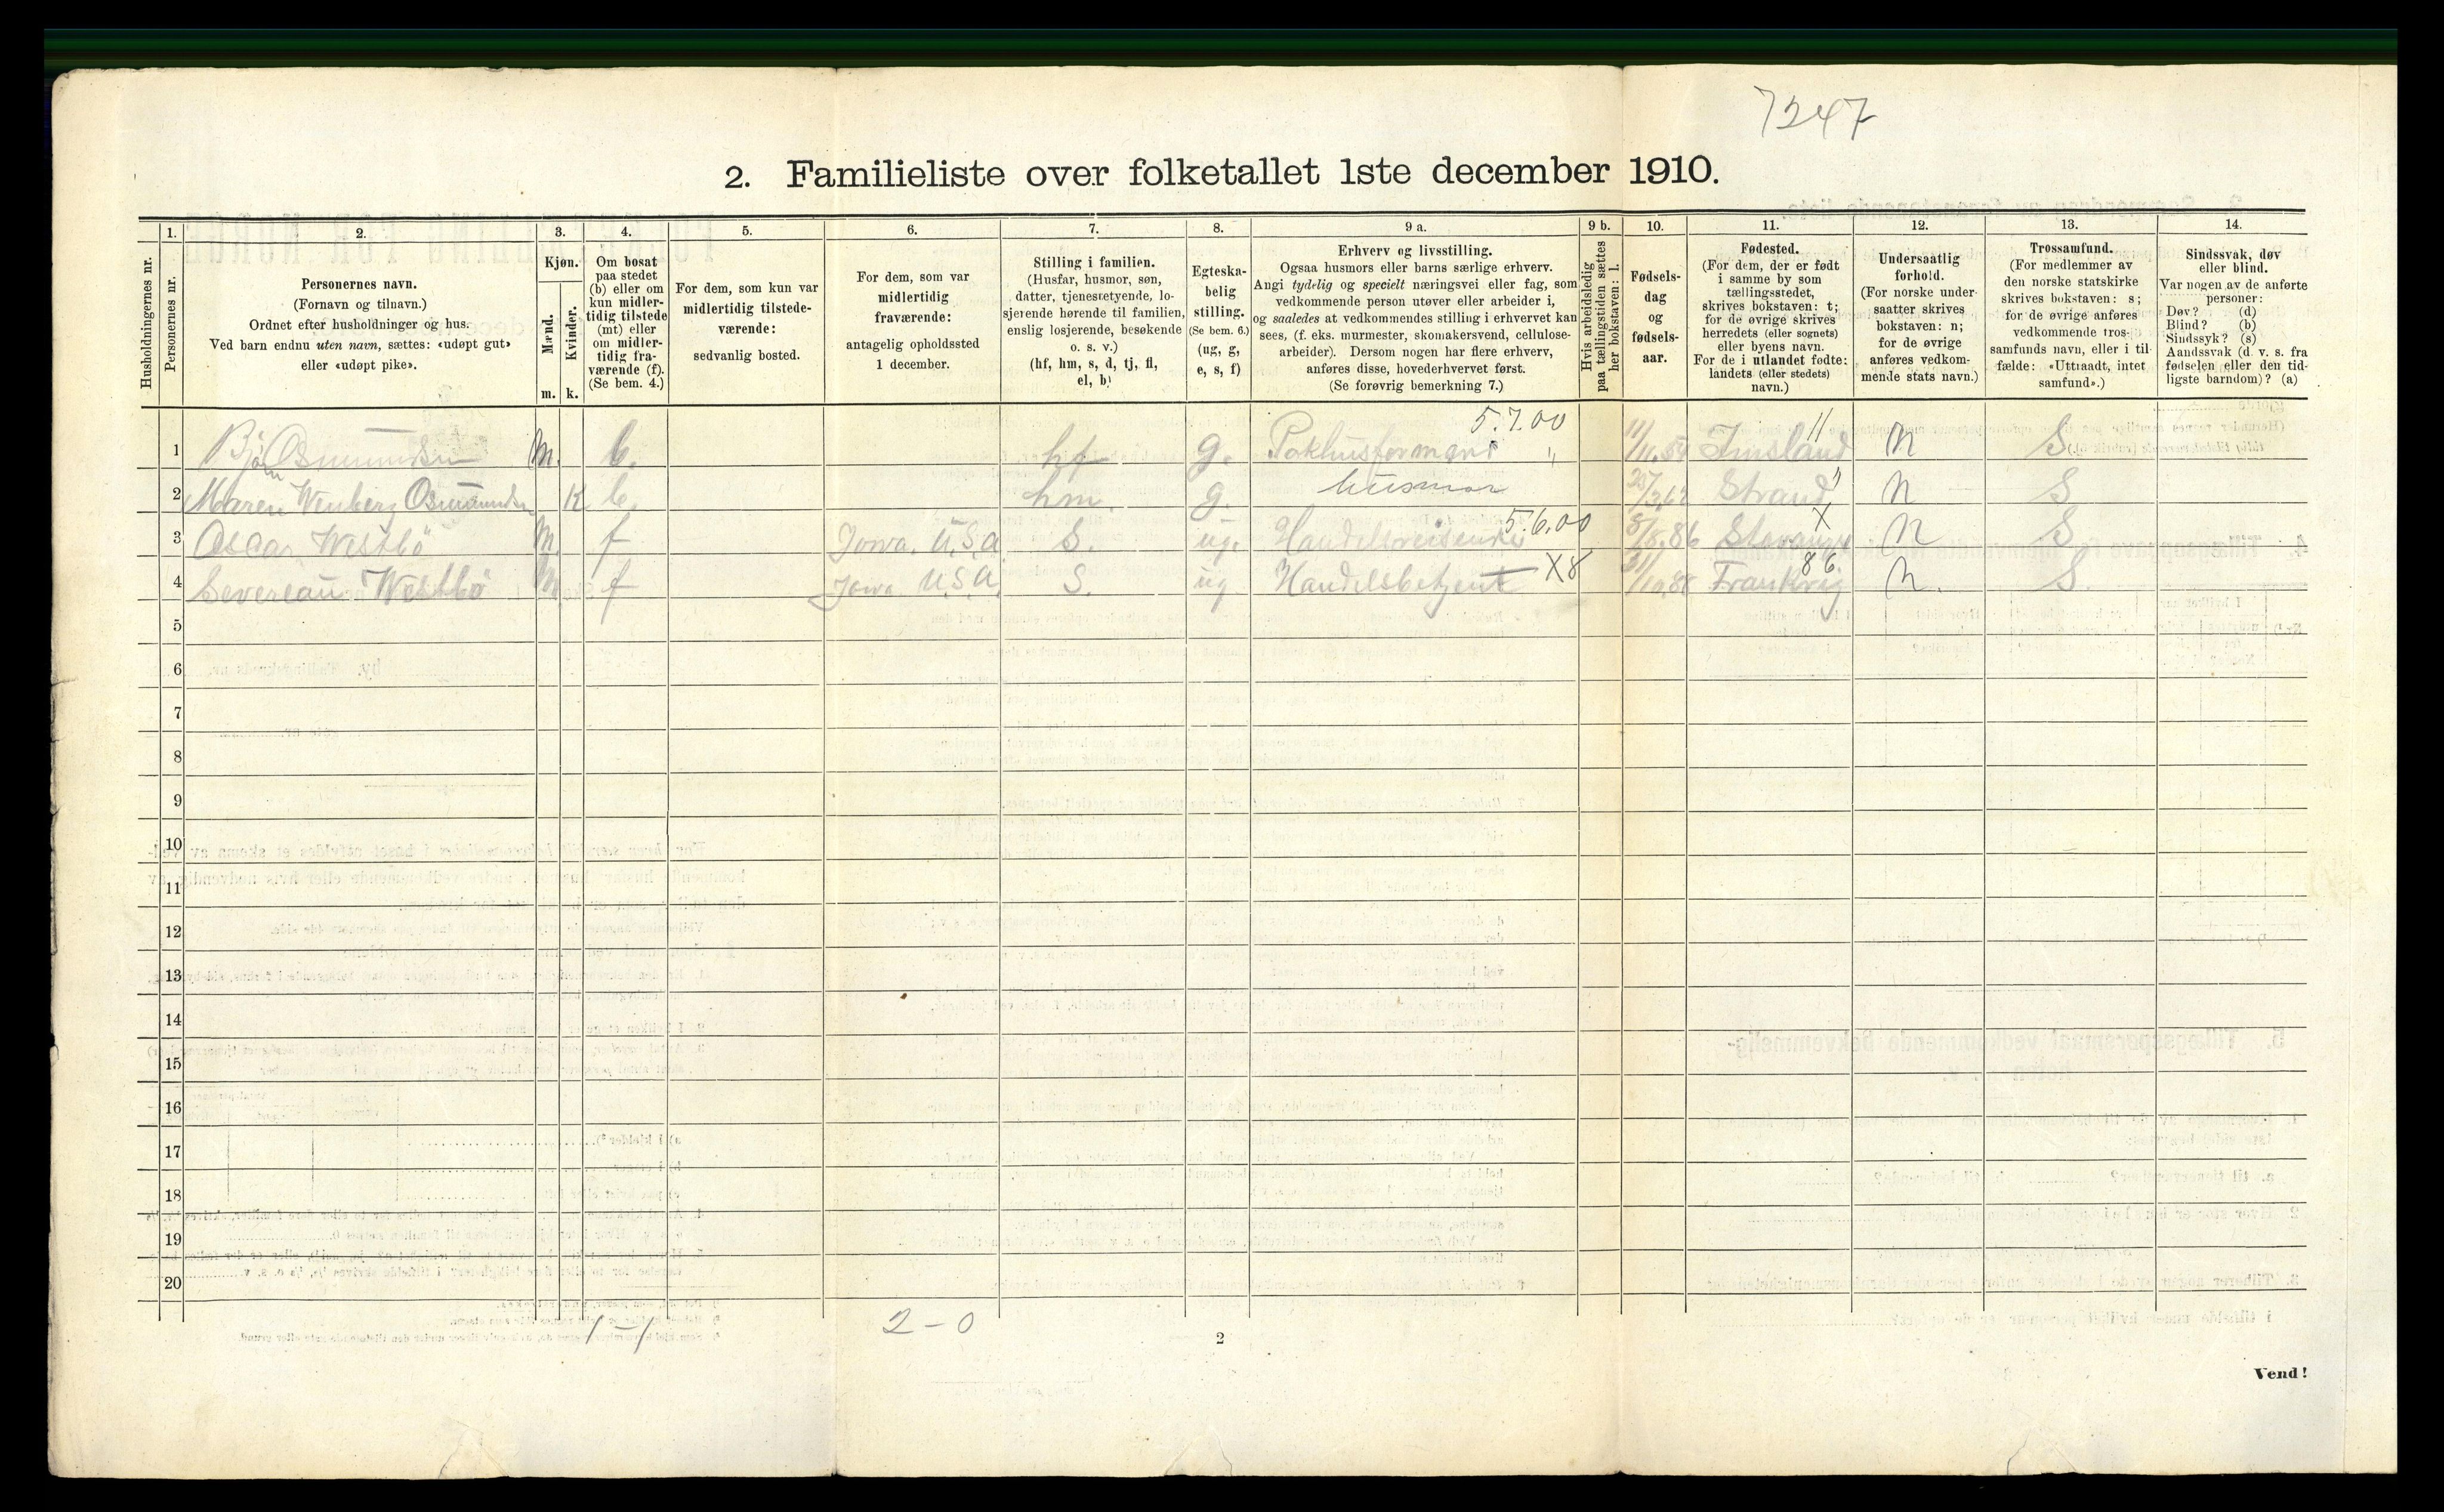 7247
2. Familieliste over folketallet 1ste december 1910.
1. 2. 3. 4. 5. 6. 7. 8. 9 a. 9 b. 10. 11. 12. 13. 14.
Husholdningernes nr.
Personernes nr.
Personernes navn.
(Fornavn og tilnavn.)
Ordnet efter husholdninger og hus.
Ved barn endnu uten navn, sættes: «udøpt gut»
eller «udøpt pike».
Kjøn.
Mænd.
Kvinder.
m. k.
Om bosat
paa stedet
(b) eller om
kun midler-
tidig tilstede
(mt) eller
om midler-
tidig fra-
værende (f).
(Se bem. 4.)
For dem, som kun var
midlertidig tilstede-
værende:
sedvanlig bosted.
For dem, som var
midlertidig
fraværende:
antagelig opholdssted
1 december.
Stilling i familien.
(Husfar, husmor, søn,
datter, tjenestetyende, lo-
sjerende hørende til familien,
enslig losjerende, besøkende
o. s. v.)
(hf, hm, s, d, tj, fl,
el, b)
Egteska-
belig
stilling.
(Se bem. 6.)
(ug, g,
e, s, f)
Erhverv og livsstilling.
Ogsaa husmors eller barns særlige erhverv.
Angi tydelig og specielt næringsvei eller fag, som
vedkommende person utøver eller arbeider i,
og saaledes at vedkommendes stilling i erhvervet kan
sees, (f. eks. murmester, skomakersvend, cellulose-
arbeider). Dersom nogen har flere erhverv,
anføres disse, hovederhvervet først.
(Se forøvrig bemerkning 7.)
Hvis arbeidsledig
paa tællingstiden sættes
her bokstaven: l.
Fødsels-
dag
og
fødsels-
aar.
Fødested.
(For dem, der er født
i samme by som
tællingsstedet,
skrives bokstaven: t;
for de øvrige skrives
herredets (eller sognets)
eller byens navn.
For de i utlandet fødte:
landets (eller stedets)
navn.)
Undersaatlig
forhold.
(For norske under-
saatter skrives
bokstaven: n;
for de øvrige
anføres vedkom-
mende stats navn.)
Trossamfund.
(For medlemmer av
den norske statskirke
skrives bokstaven: s;
for de øvrige anføres
vedkommende tros-
samfunds navn, eller i til-
fælde: «Uttraadt, intet
samfund».)
Sindssvak, døv
eller blind.
Var nogen av de anførte
personer:
Døv? (d)
Blind? (b)
Sindssyk? (s)
Aandssvak (d. v. s. fra
fødselen eller den tid-
ligste barndom)? (a)
5.7.00 11
1 Bjørn Osmundsen M. b. hf g. Pakhusformand " 11/11.54 Imsland n S
2 Maren Wenberg Osmundsen K b. hm. g. husmor Strand n S
5.6.00 X
3 Oscar Westbö M. f Jowa. U.S.A S. ug. Handelsreisende 8/8.86 Stavanger n S
X8 86
4 Severeau Westbö M. f Jowa U.S.A. S. ug Handelsbetjent 31/10.88 Frankrig n. S.
5
6
7
8
9
10
11
12
13
14
15
16
17
18
19
20
1-1 2-0
2
Vend!